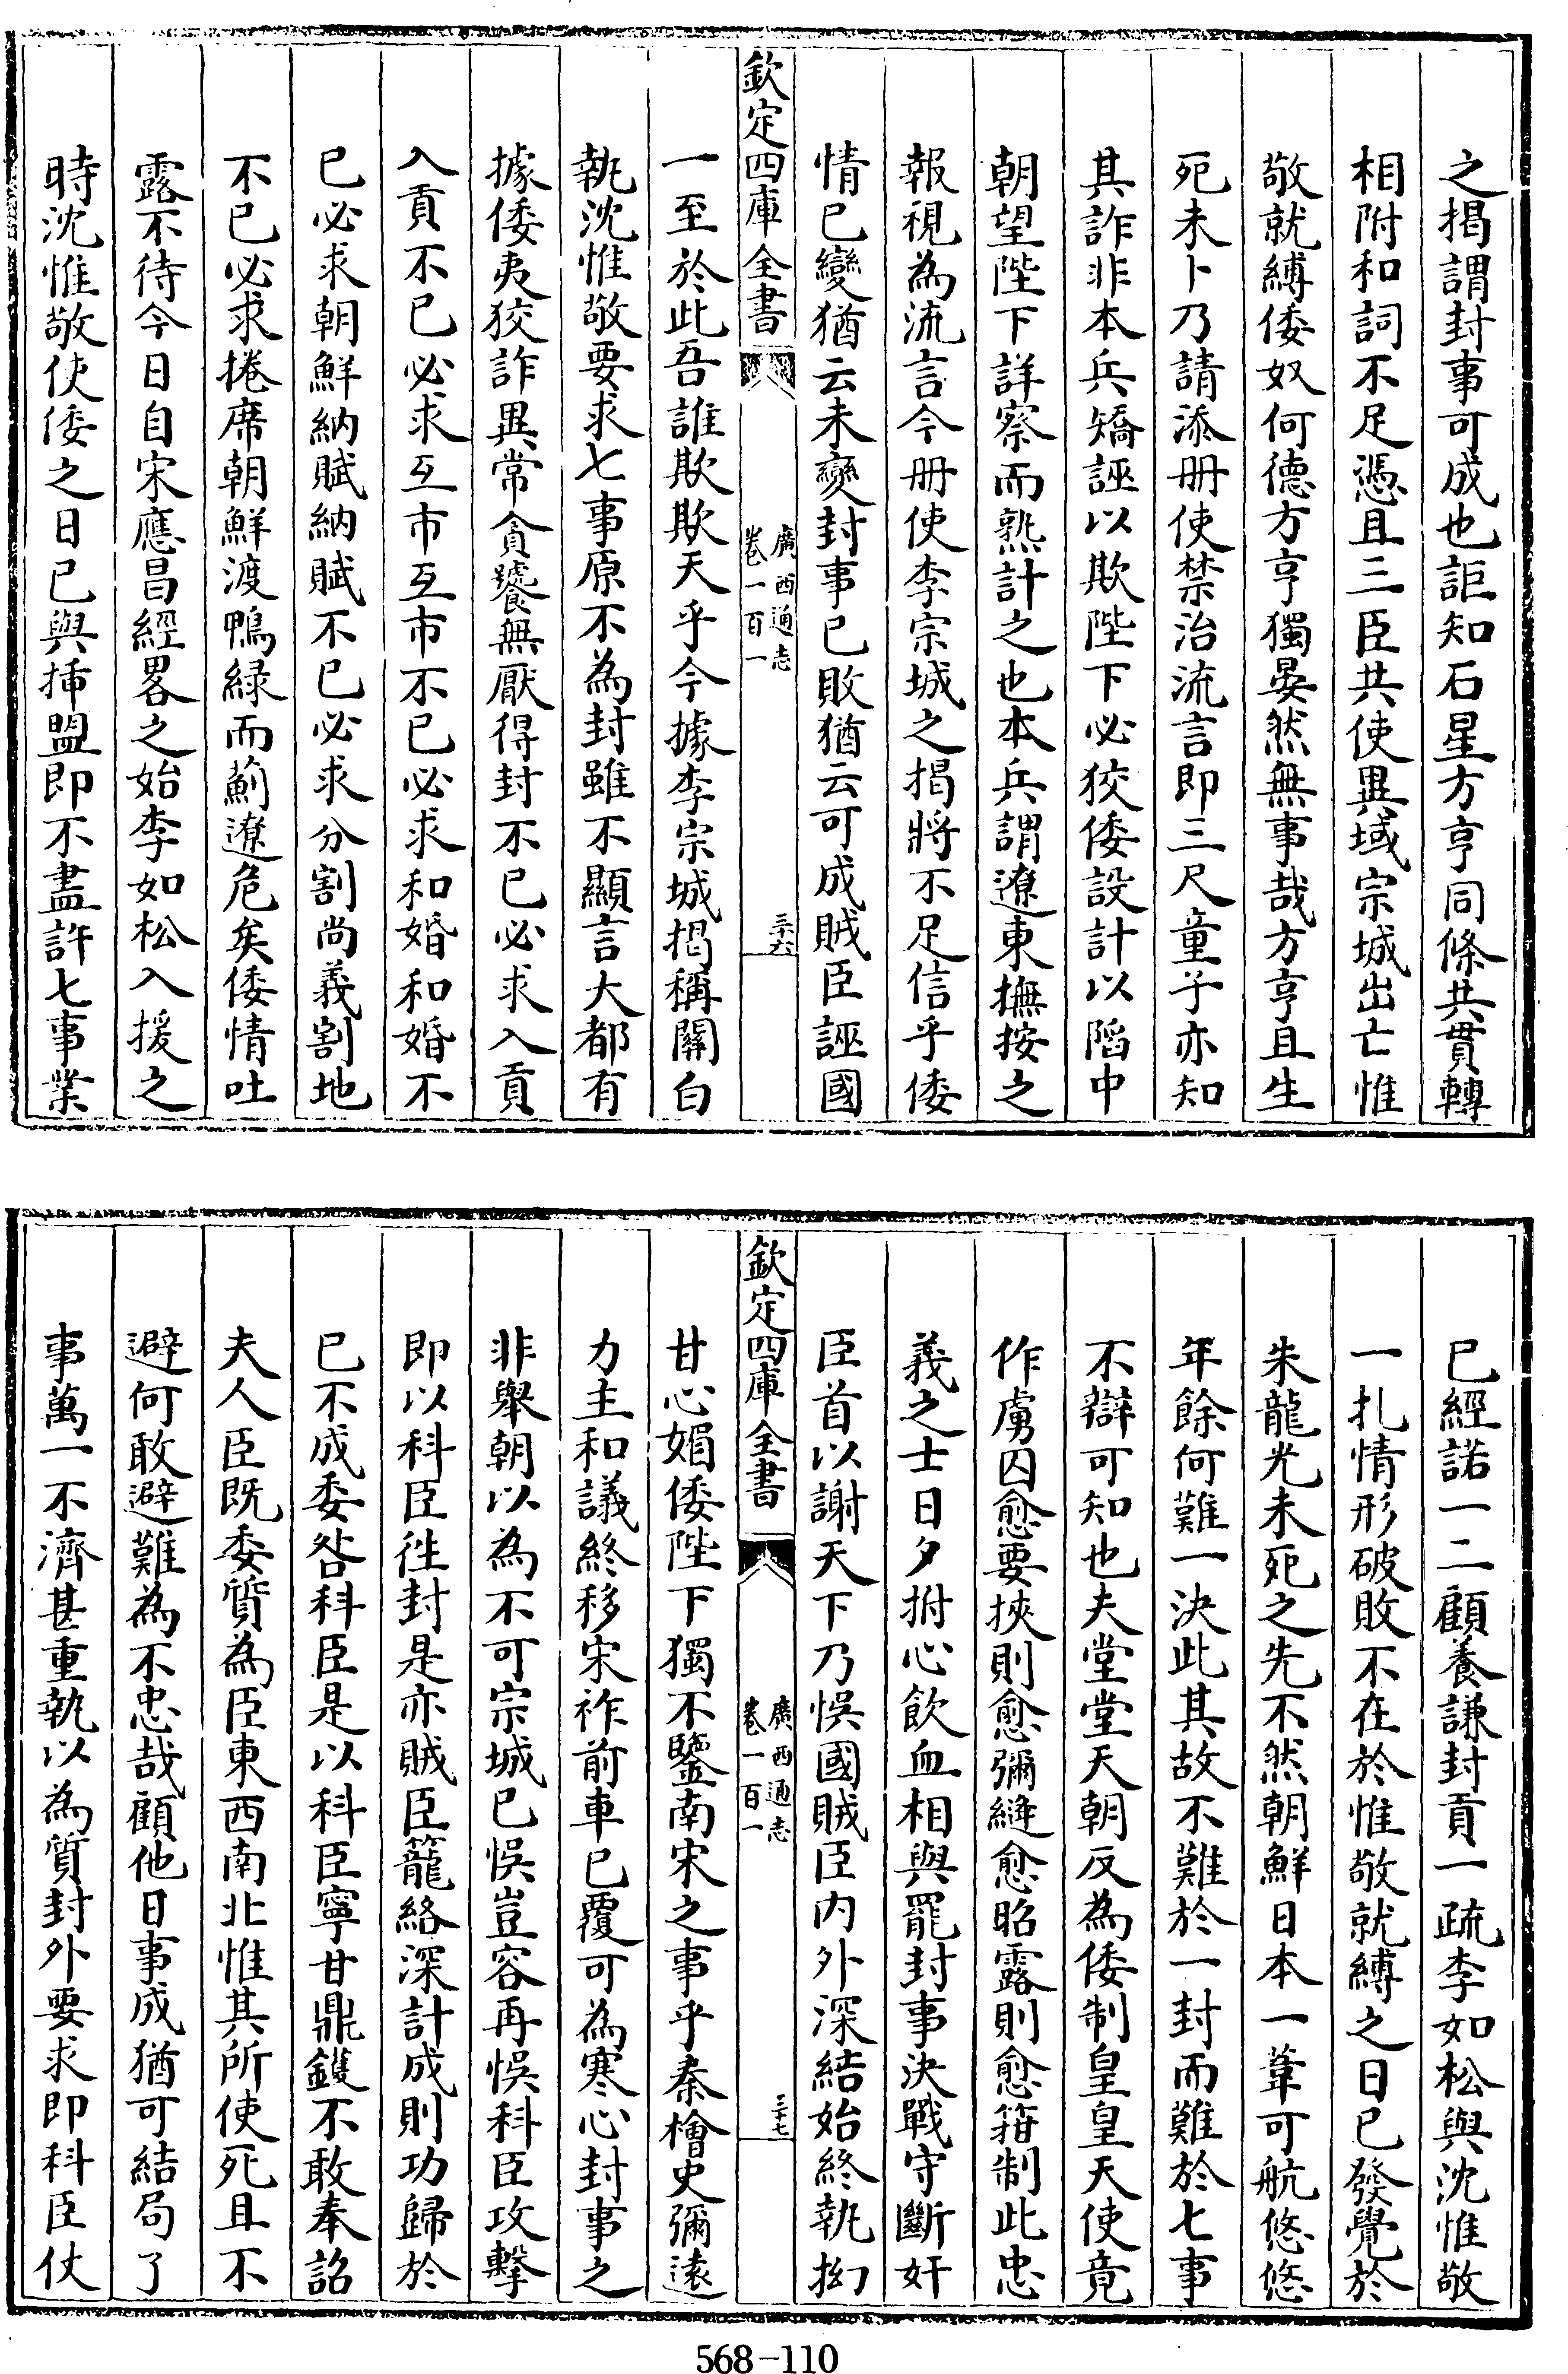 之揭謂封事可成也詎知石星方亨同條共貫轉
相附和詞不足憑且三臣共使異域宗城出亡惟
敬就縛倭奴何德方亨獨晏然無事哉方亨且生
死未卜乃請添册使禁治流言即三尺童子亦知
其詐非本兵矯誣以欺陛下必狡倭設計以䧟中
朝望陛下詳察而熟計之也本兵謂遼東撫按之
報視為流言今册使李宗城之揭將不足信乎倭
情已變猶云未變封事已敗猶云可成賊臣誣國
欽定四庫全書
廣西通志
卷一百一
三十六
一至於此吾誰欺欺天乎今據李宗城揭稱關白
執沈惟敬要求七事原不為封雖不顯言大都有
據倭夷狡詐異常貪饕無厭得封不已必求入貢
入貢不已必求互市互市不已必求和婚和婚不
已必求朝鮮納賦納賦不已必求分割尚義割地
不已必求捲席朝鮮渡鴨緑而薊遼危矣倭情吐
露不待今日自宋應昌經畧之始李如松入援之
時沈惟敬使倭之日已與挿盟即不盡許七事業
已經諾一二顧養謙封貢一疏李如松與沈惟敬
一扎情形破敗不在於惟敬就縛之日已發覺於
朱龍光未死之先不然朝鮮日本一葦可航悠悠
年餘何難一決此其故不難於一封而難於七事
不辯可知也夫堂堂天朝反為倭制皇皇天使竟
作虜囚愈要挾則愈彌縫愈昭露則愈箝制此忠
義之士日夕拊心飲血相與罷封事決戰守斷奸
臣首以謝天下乃悞國賊臣内外深結始終執拗
欽定四庫全書
廣西通志
卷一百一
三十七
甘心媚倭陛下獨不鑒南宋之事乎秦檜史彌遠
力主和議終移宋祚前車已覆可為寒心封事之
非舉朝以為不可宗城已悞豈容再悞科臣攻擊
即以科臣徃封是亦賊臣籠絡深計成則功歸於
已不成委咎科臣是以科臣寧甘鼎鑊不敢奉詔
夫人臣既委質為臣東西南北惟其所使死且不
避何敢避難為不忠哉顧他日事成猶可結局了
事萬一不濟甚重執以為質封外要求即科臣仗
568-110